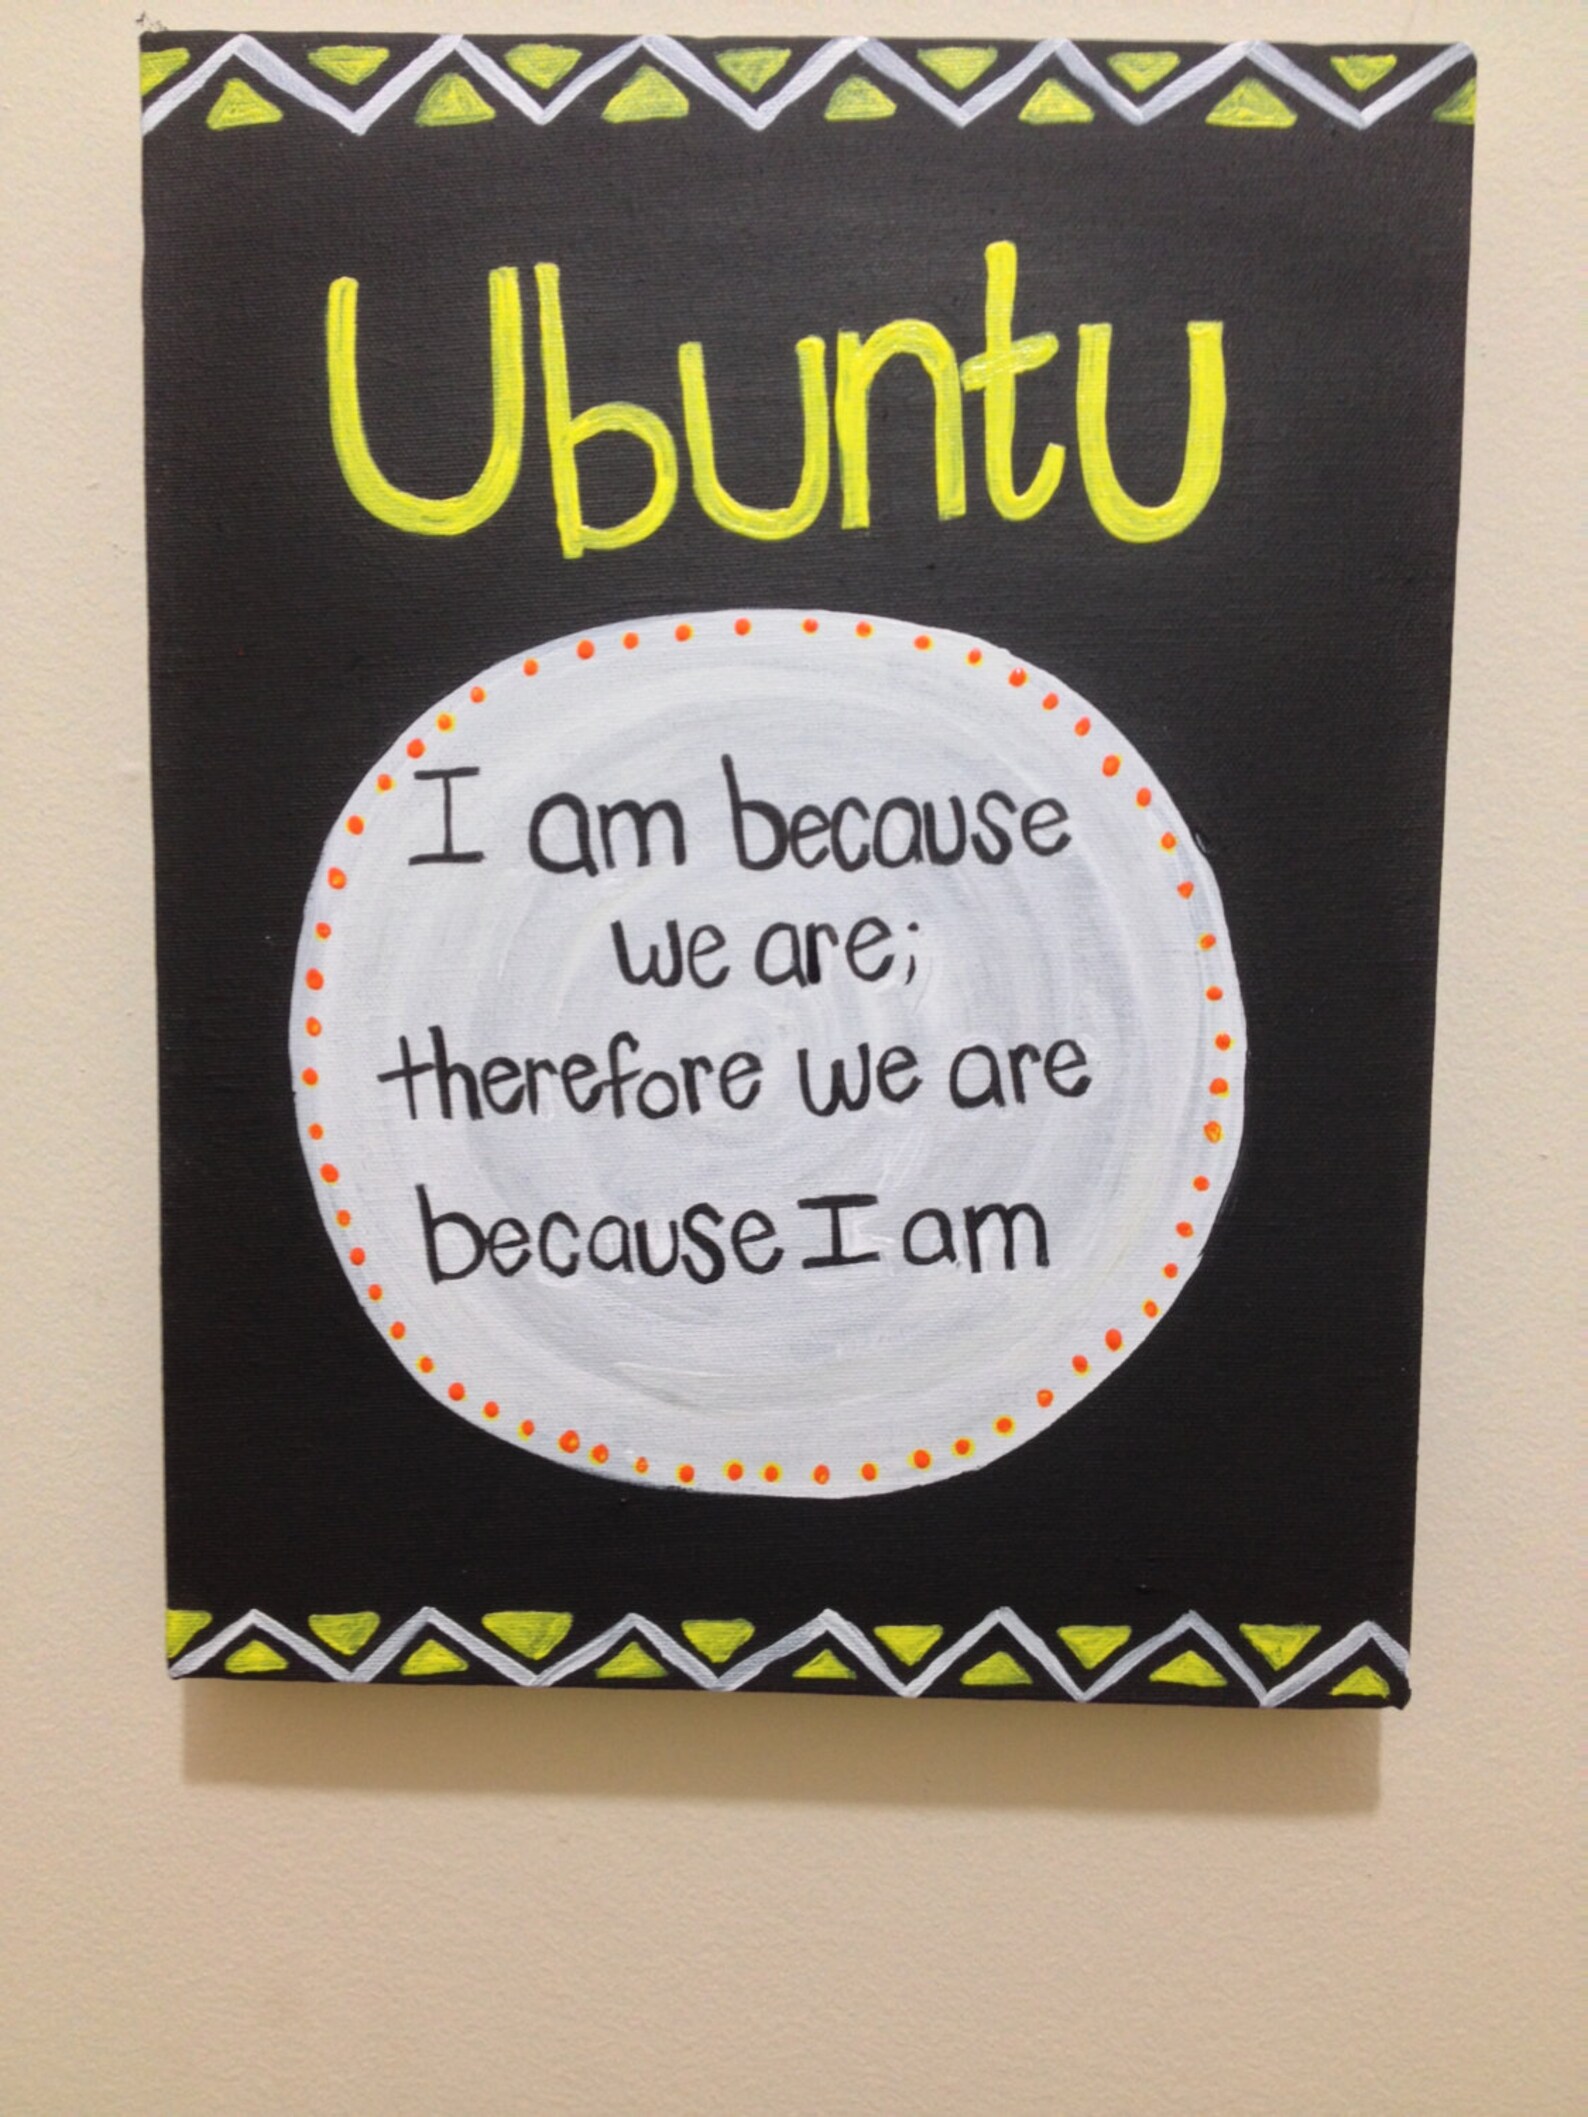 Ubuntu
I am because
we are;
therefore we are
because I am